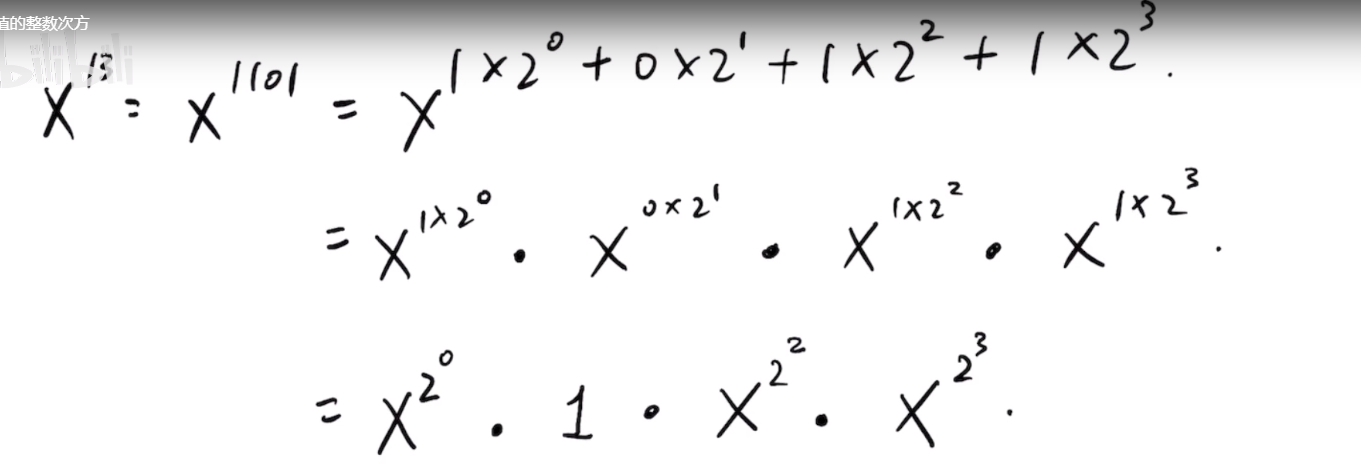 值的整数次方
bilibili
x¹³ = x¹¹⁰¹ = x^(1×2⁰ + 0×2¹ + 1×2² + 1×2³).
= x^(1×2⁰) · x^(0×2¹) · x^(1×2²) · x^(1×2³).
= x^(2⁰) · 1 · x^(2²) · x^(2³).